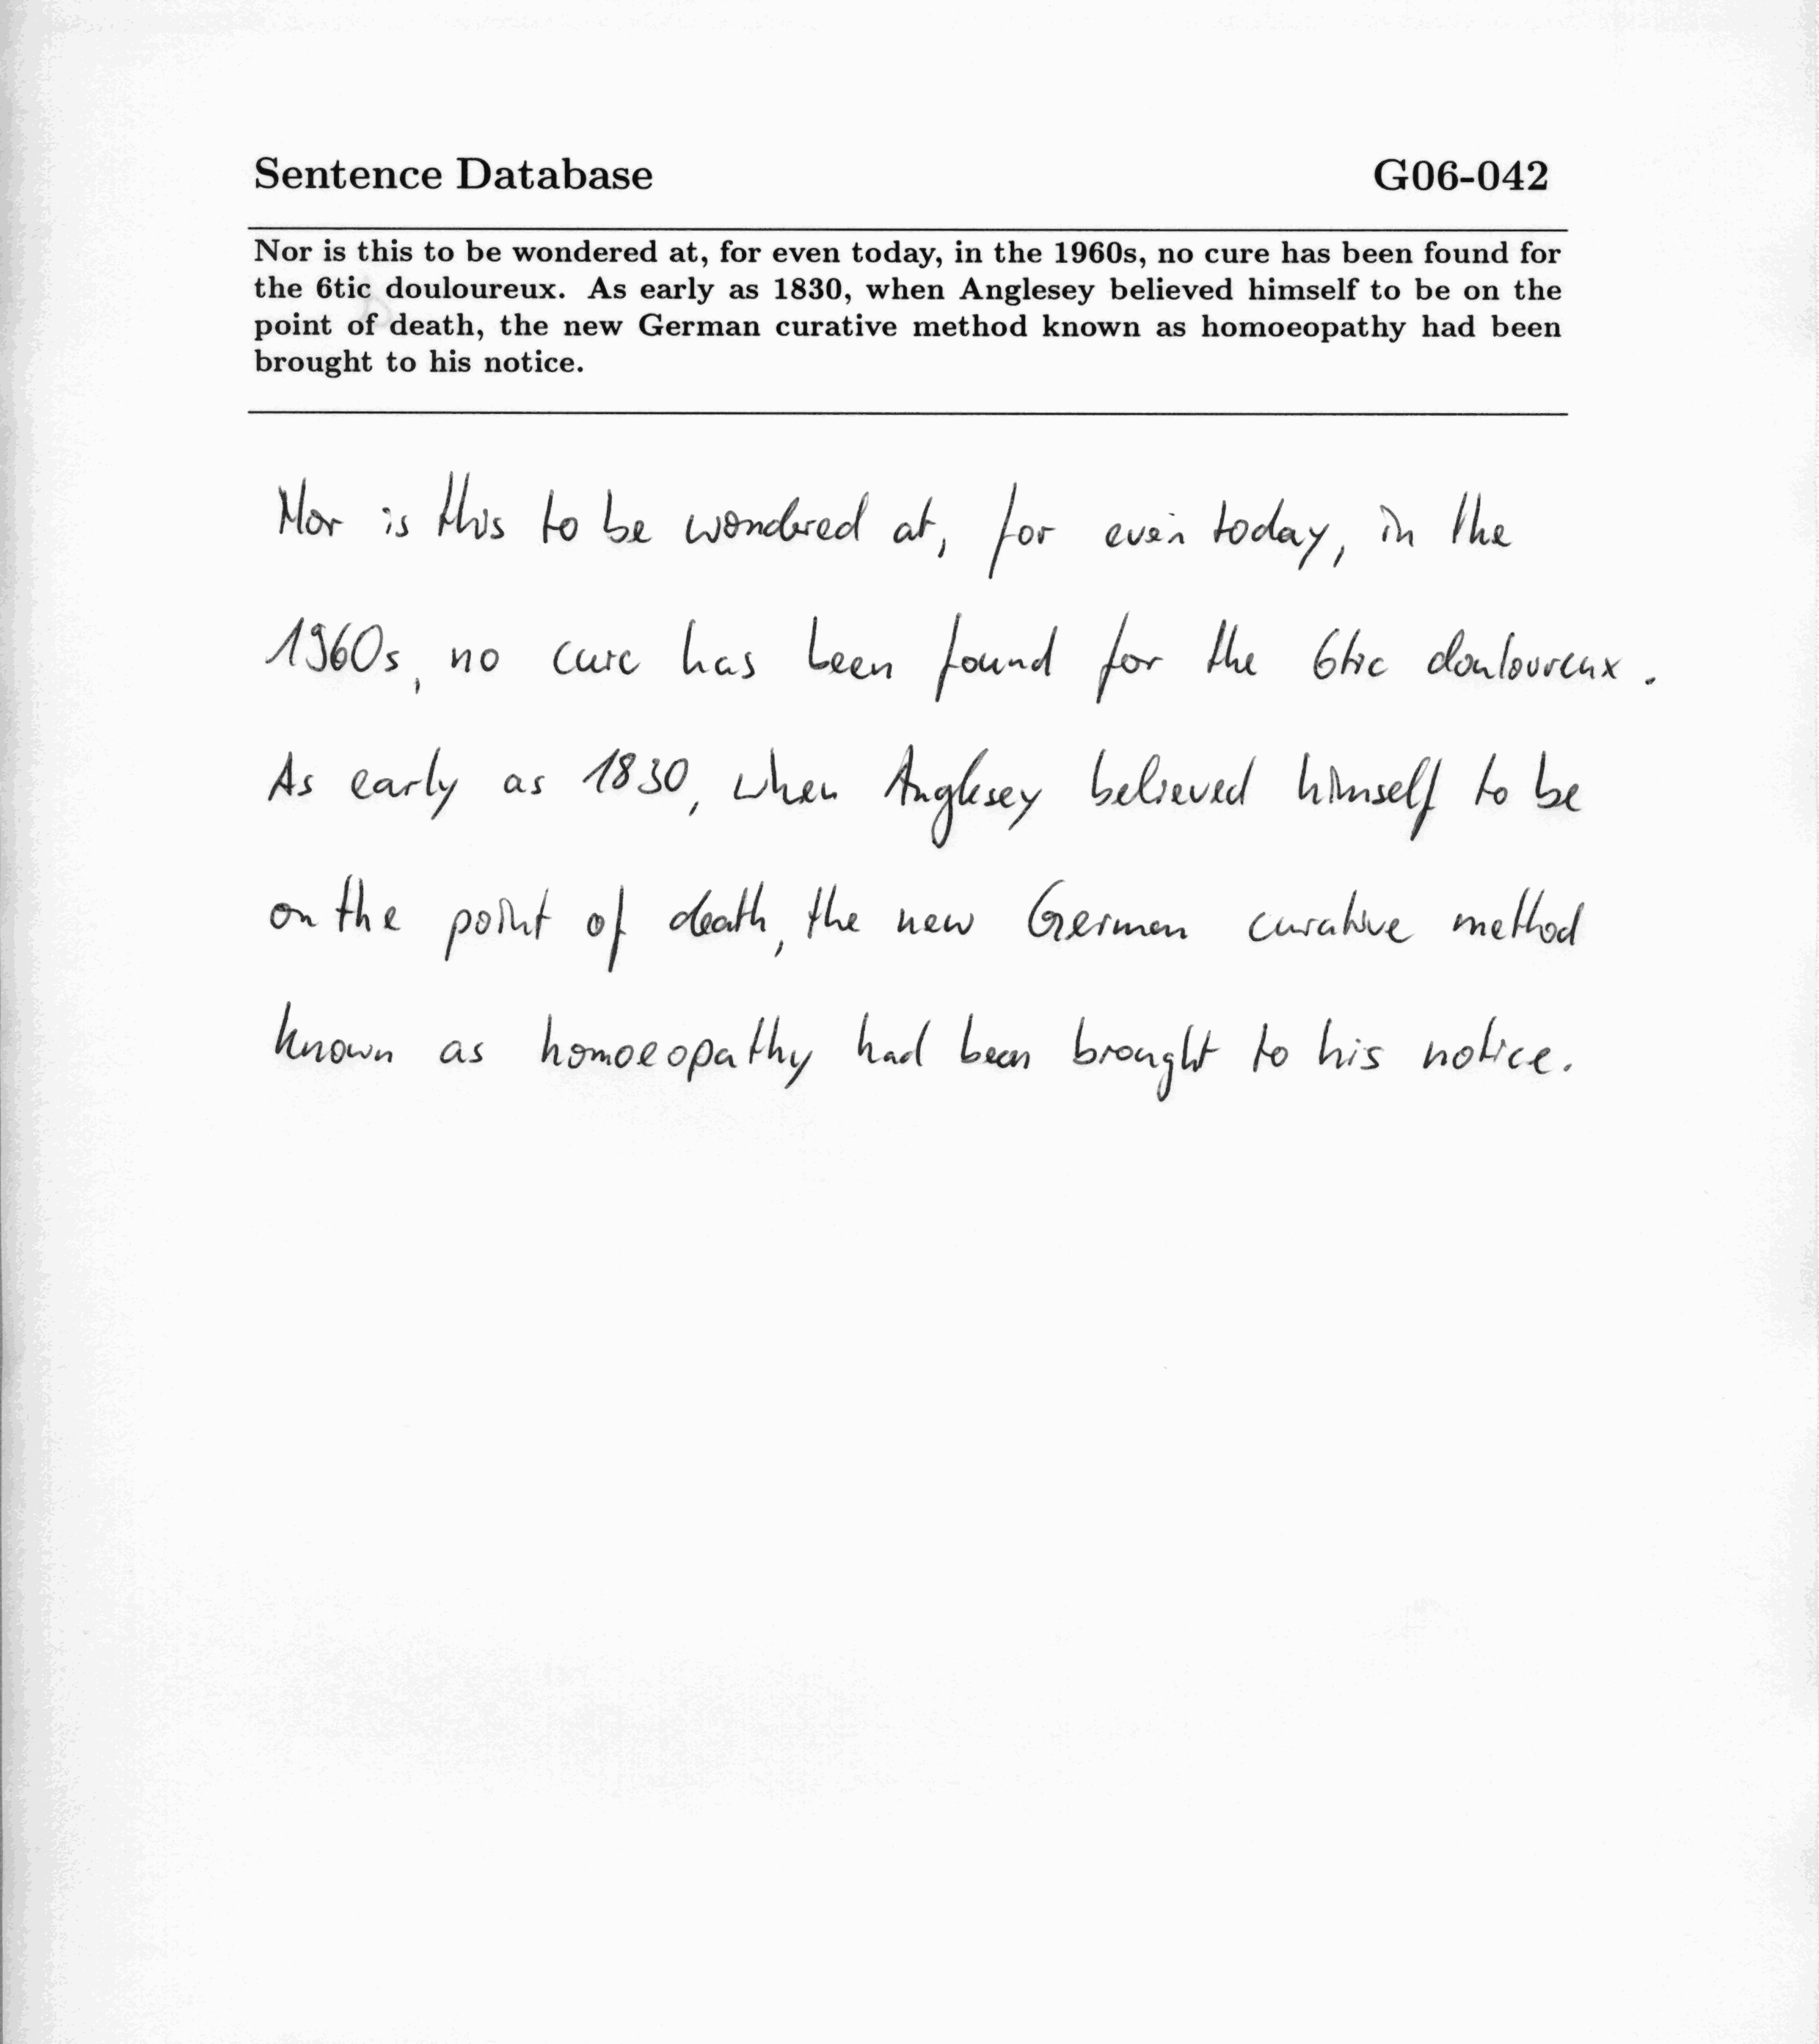 Sentence Database G06-042
Nor is this to be wondered at, for even today, in the 1960s, no cure has been found for
the 6tic douloureux. As early as 1830, when Anglesey believed himself to be on the
point of death, the new German curative method known as homoeopathy had been
brought to his notice.
Nor is this to be wondered at, for even today, in the
1960s, no cure has been found for the 6tic douloureux.
As early as 1830, when Anglesey believed himself to be
on the point of death, the new German curative method
known as homoeopathy had been brought to his notice.